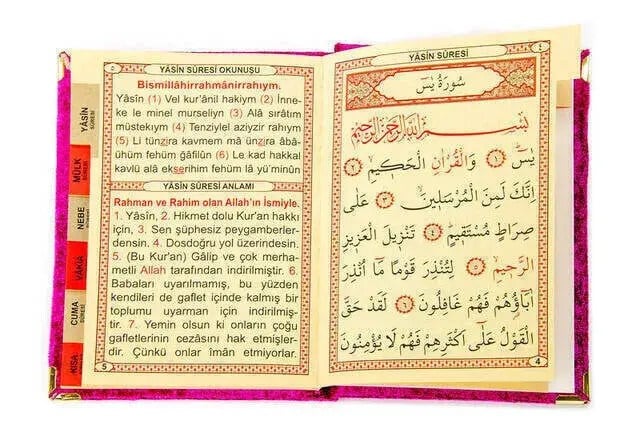 YASİN
SÛRESİ
MÜLK
SÛRESİ
NEBE
VAKIA
CUMA
SÛRESİ
KISA
٥
YÂSİN SÛRESİ OKUNUŞU
Bismillâhirrahmânirrahıym.
Yâsîn (1) Vel kur'ânil hakiym (2) İnne-
ke le minel murseliyn (3) Alâ sırâtım
müstekıym (4) Tenziylel aziyzir rahıym
(5) Li tünzira kavmem mâ ünzira âbâ-
ühüm fehüm ğâfilûn (6) Le kad hakkal
kavlü alâ ekserihim fehüm lâ yü'minûn
YÂSİN SÛRESİ ANLAMI
Rahman ve Rahim olan Allah'ın İsmiyle.
1. Yâsîn, 2. Hikmet dolu Kur'an hakkı
için, 3. Sen şüphesiz peygamberler-
densin. 4. Dosdoğru yol üzerindesin.
5. (Bu Kur'an) Gâlip ve çok merha-
metli Allah tarafından indirilmiştir. 6.
Babaları uyarılmamış, bu yüzden
kendileri de gaflet içinde kalmış bir
toplumu uyarman için indirilmiş-
tir. 7. Yemin olsun ki onların çoğu
gafletlerinin cezasını hak etmişler-
dir. Çünkü onlar îmân etmiyorlar.
5
٤
YÂSİN SÛRESİ
سُورَةُ يٰسٓ
بِسْمِ اللّٰهِ الرَّحْمٰنِ الرَّحٖيمِ
يٰسٓ ﴿١﴾ وَالْقُرْاٰنِ الْحَكٖيمِ ﴿٢﴾
اِنَّكَ لَمِنَ الْمُرْسَلٖينَ ﴿٣﴾ عَلٰى
صِرَاطٍ مُسْتَقٖيمٍ ﴿٤﴾ تَنْزٖيلَ الْعَزٖيزِ
الرَّحٖيمِ ﴿٥﴾ لِتُنْذِرَ قَوْمًا مَٓا اُنْذِرَ
اٰبَٓاؤُهُمْ فَهُمْ غَافِلُونَ ﴿٦﴾ لَقَدْ حَقَّ
الْقَوْلُ عَلٰٓى اَكْثَرِهِمْ فَهُمْ لَا يُؤْمِنُونَ
4